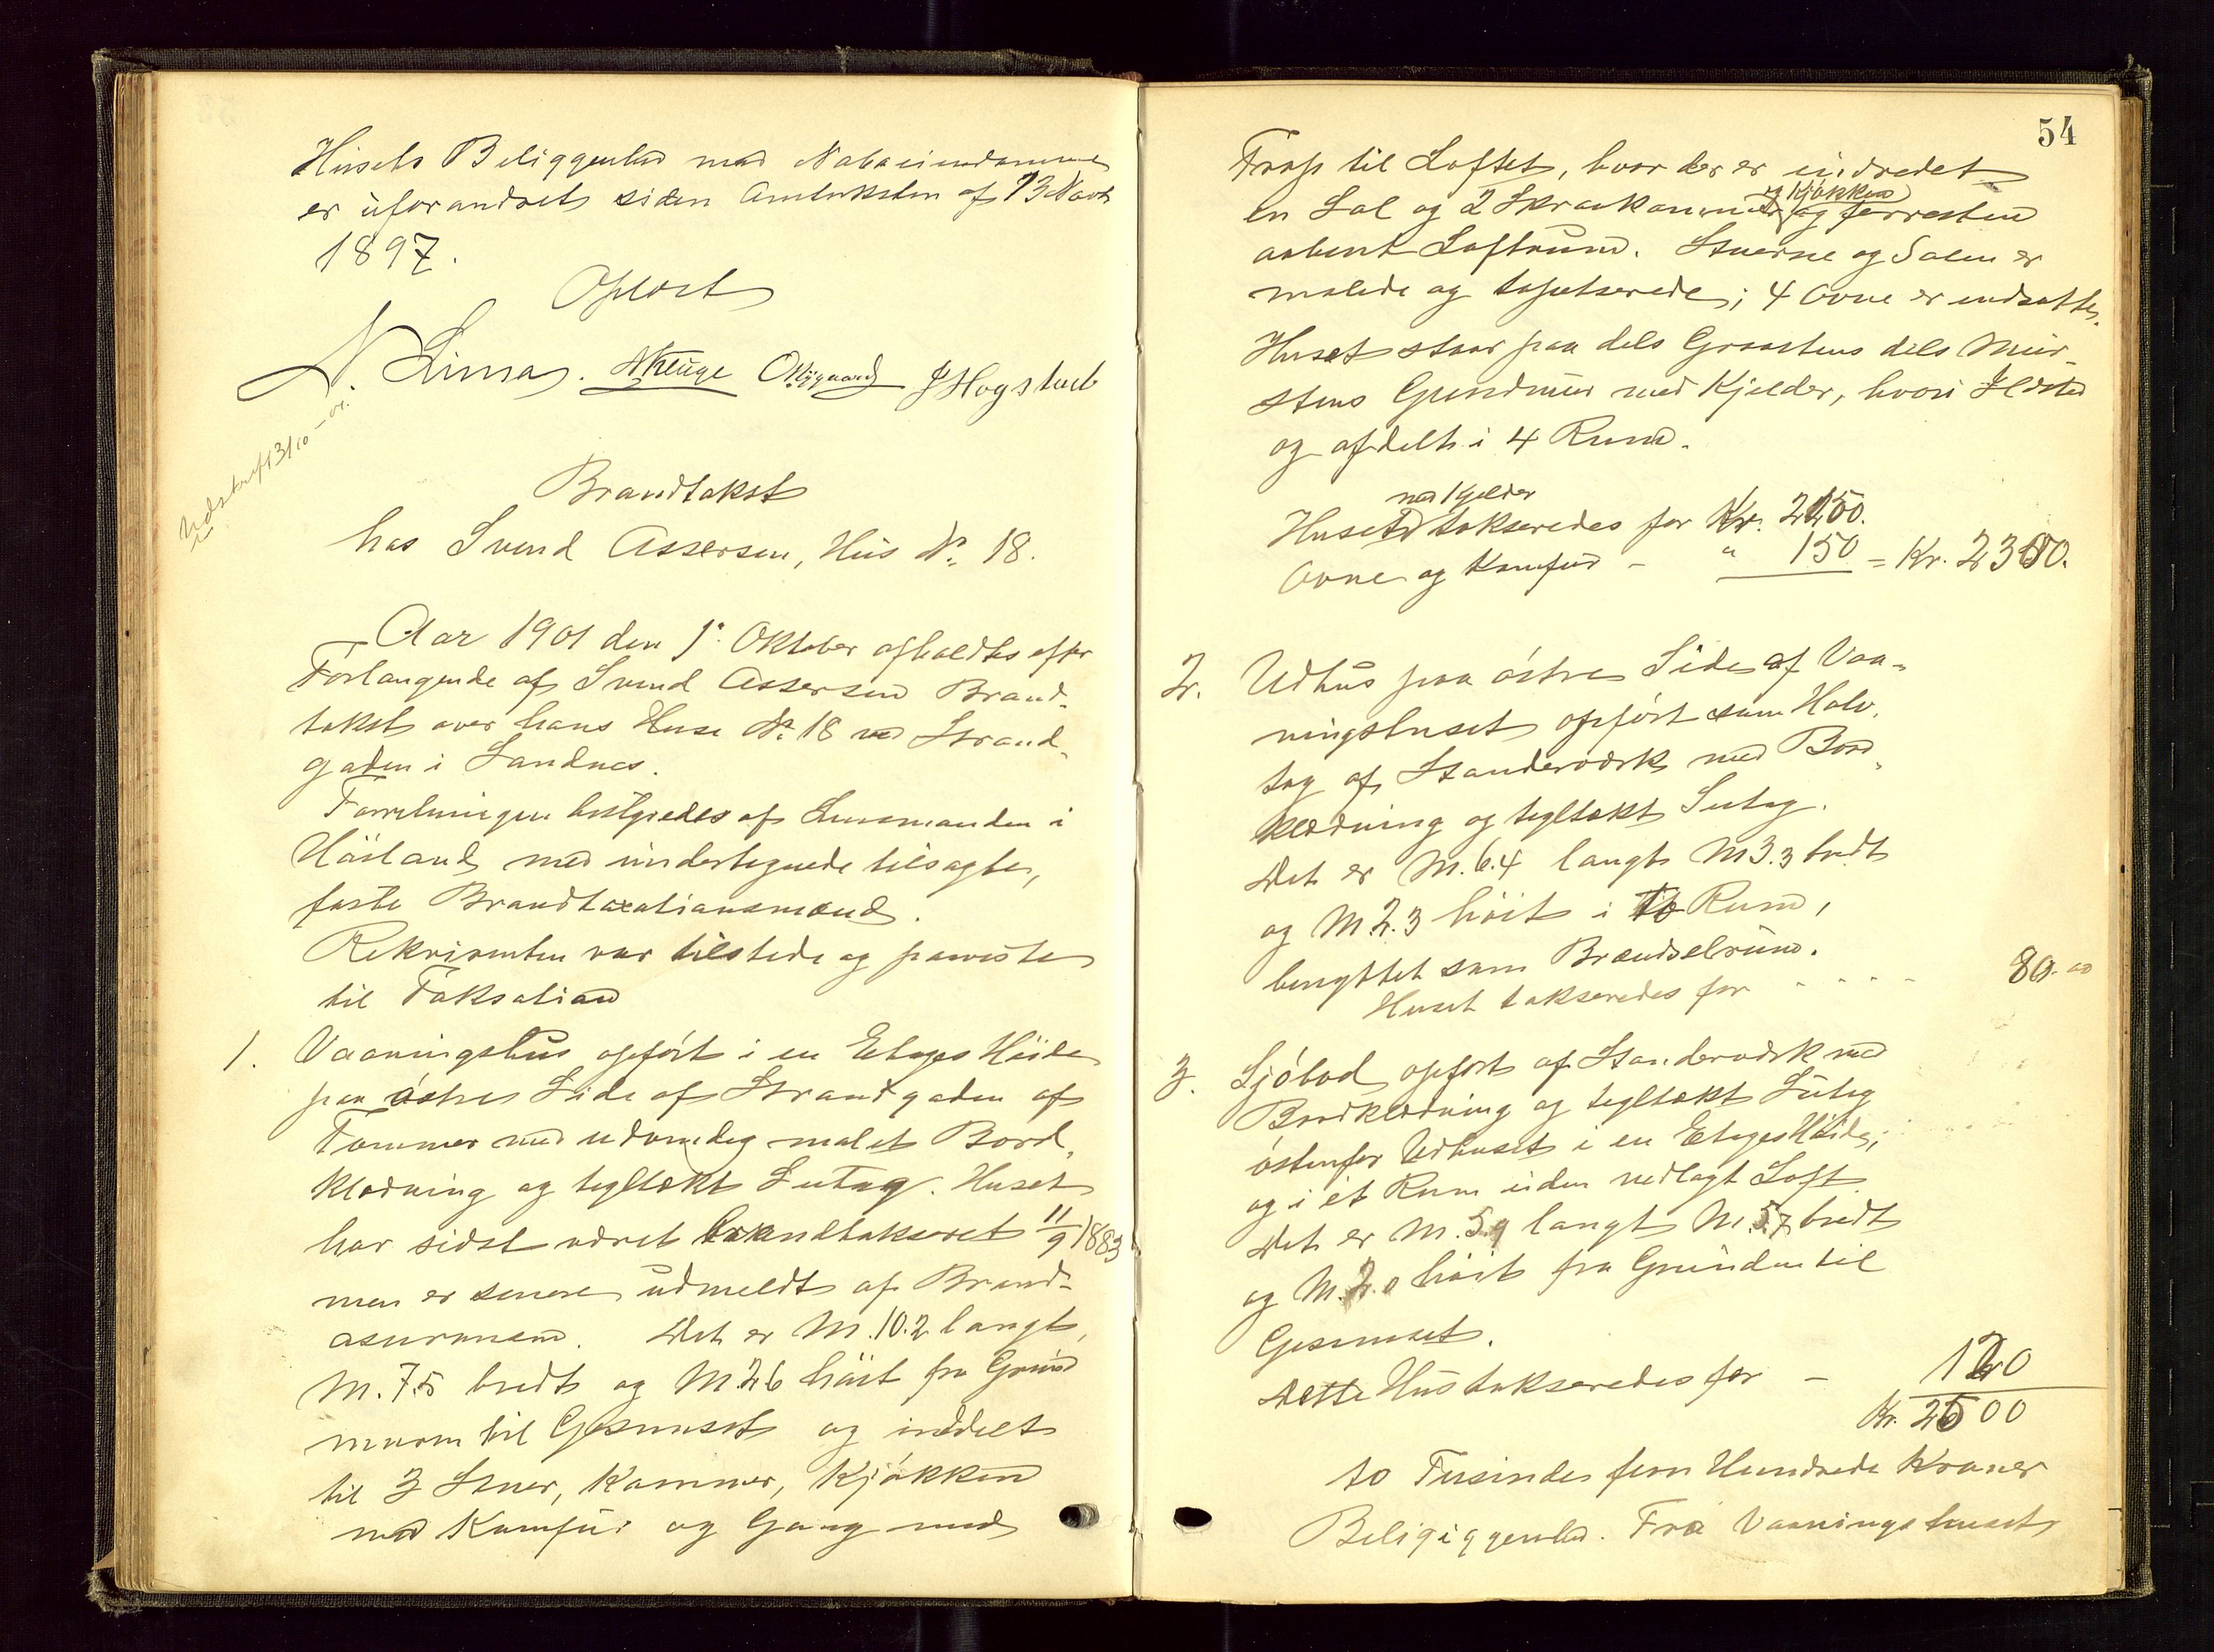 Husets Beliggenhed med Naboeiendomme
er uforandret siden Omtaksten af 13 Novb
1897.
Oplæst
N. Lima. NKluge J Hogstad
Udskrift 13/10-01.
Brandtakst
hos Svend Assersen, Hus No 18.
Aar 1901 den 1. Oktober afholdtes efter
Forlangende af Svend Assersen Brand-
takst over hans Huse No 18 ved Strand-
gaden i Sandnes.
Forretningen bestyredes af Lensmanden i
Høiland med undertegnede tilsagte,
faste Brandtaxationsmænd.
Rekvirenten var tilstede og paaviste
til Taksation
1. Vaaningshus opført i en Etages Høide
paa østre Side af Strandgaden af
Tømmer med udvendig malet Bord-
klædning og tegltækt Sutag. Huset
har sidst været brandtakseret 11/9 1883
men er senere udmeldt af Brand-
assurancen. Det er M. 10.2 langt,
M. 7.5 bredt og M 2.6 høit fra Grund
muren til Gesimset og inddelt
til 3 Stuer, Kammer, Kjøkken
med Komfur og Gang med
54
Trap til Loftet, hvor der er indredet
en Sal og 2 Skraakammer og Kjøkken og forresten
aabent Loftrum. Stuerne og Salen er
malede og tapetserede; 4 Ovne er indsatte.
Huset staar paa dels Graastens dels Mur-
stens Grundmur med Kjelder, hvori Ildsted
og afdelt i 4 Rum.
med Kjelder
Huset takseredes for Kr. 2150.
Ovne og Komfur - " 150 = Kr. 2300.
2. Udhus paa østre Side af Vaa-
ningshuset opført som Halv-
tag af Standerværk med Bord-
klædning og tegltækt Sutag.
Det er M. 6.4 langt M 3.3 bredt
og M 2.3 høit i to Rum,
benyttet som Brændselrum.
Huset takseredes for - - - - 80.00
3. Sjøbod opført af Standerværk med
Bordklædning og tegltækt Sutag
østenfor Udhuset i en Etages Høide;
og i ét Rum uden nedlagt Loft.
Det er M. 5.9 langt M. 5.7 bredt
og M. 2.0 høit fra Grunden til
Gesimset.
Dette Hus takseredes for - 120
Kr. 2500
to Tusinde fem Hundrede Kroner
Beligiggenhed. Fra Vaaningshuset